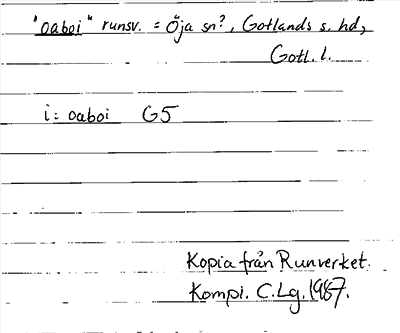 "oaboi" runsv. = Öja sn?, Gotlands s. hd,
Gotl. l.
i: oaboi G5
Kopia från Runverket.
Kompl. C.Lg. 1987.